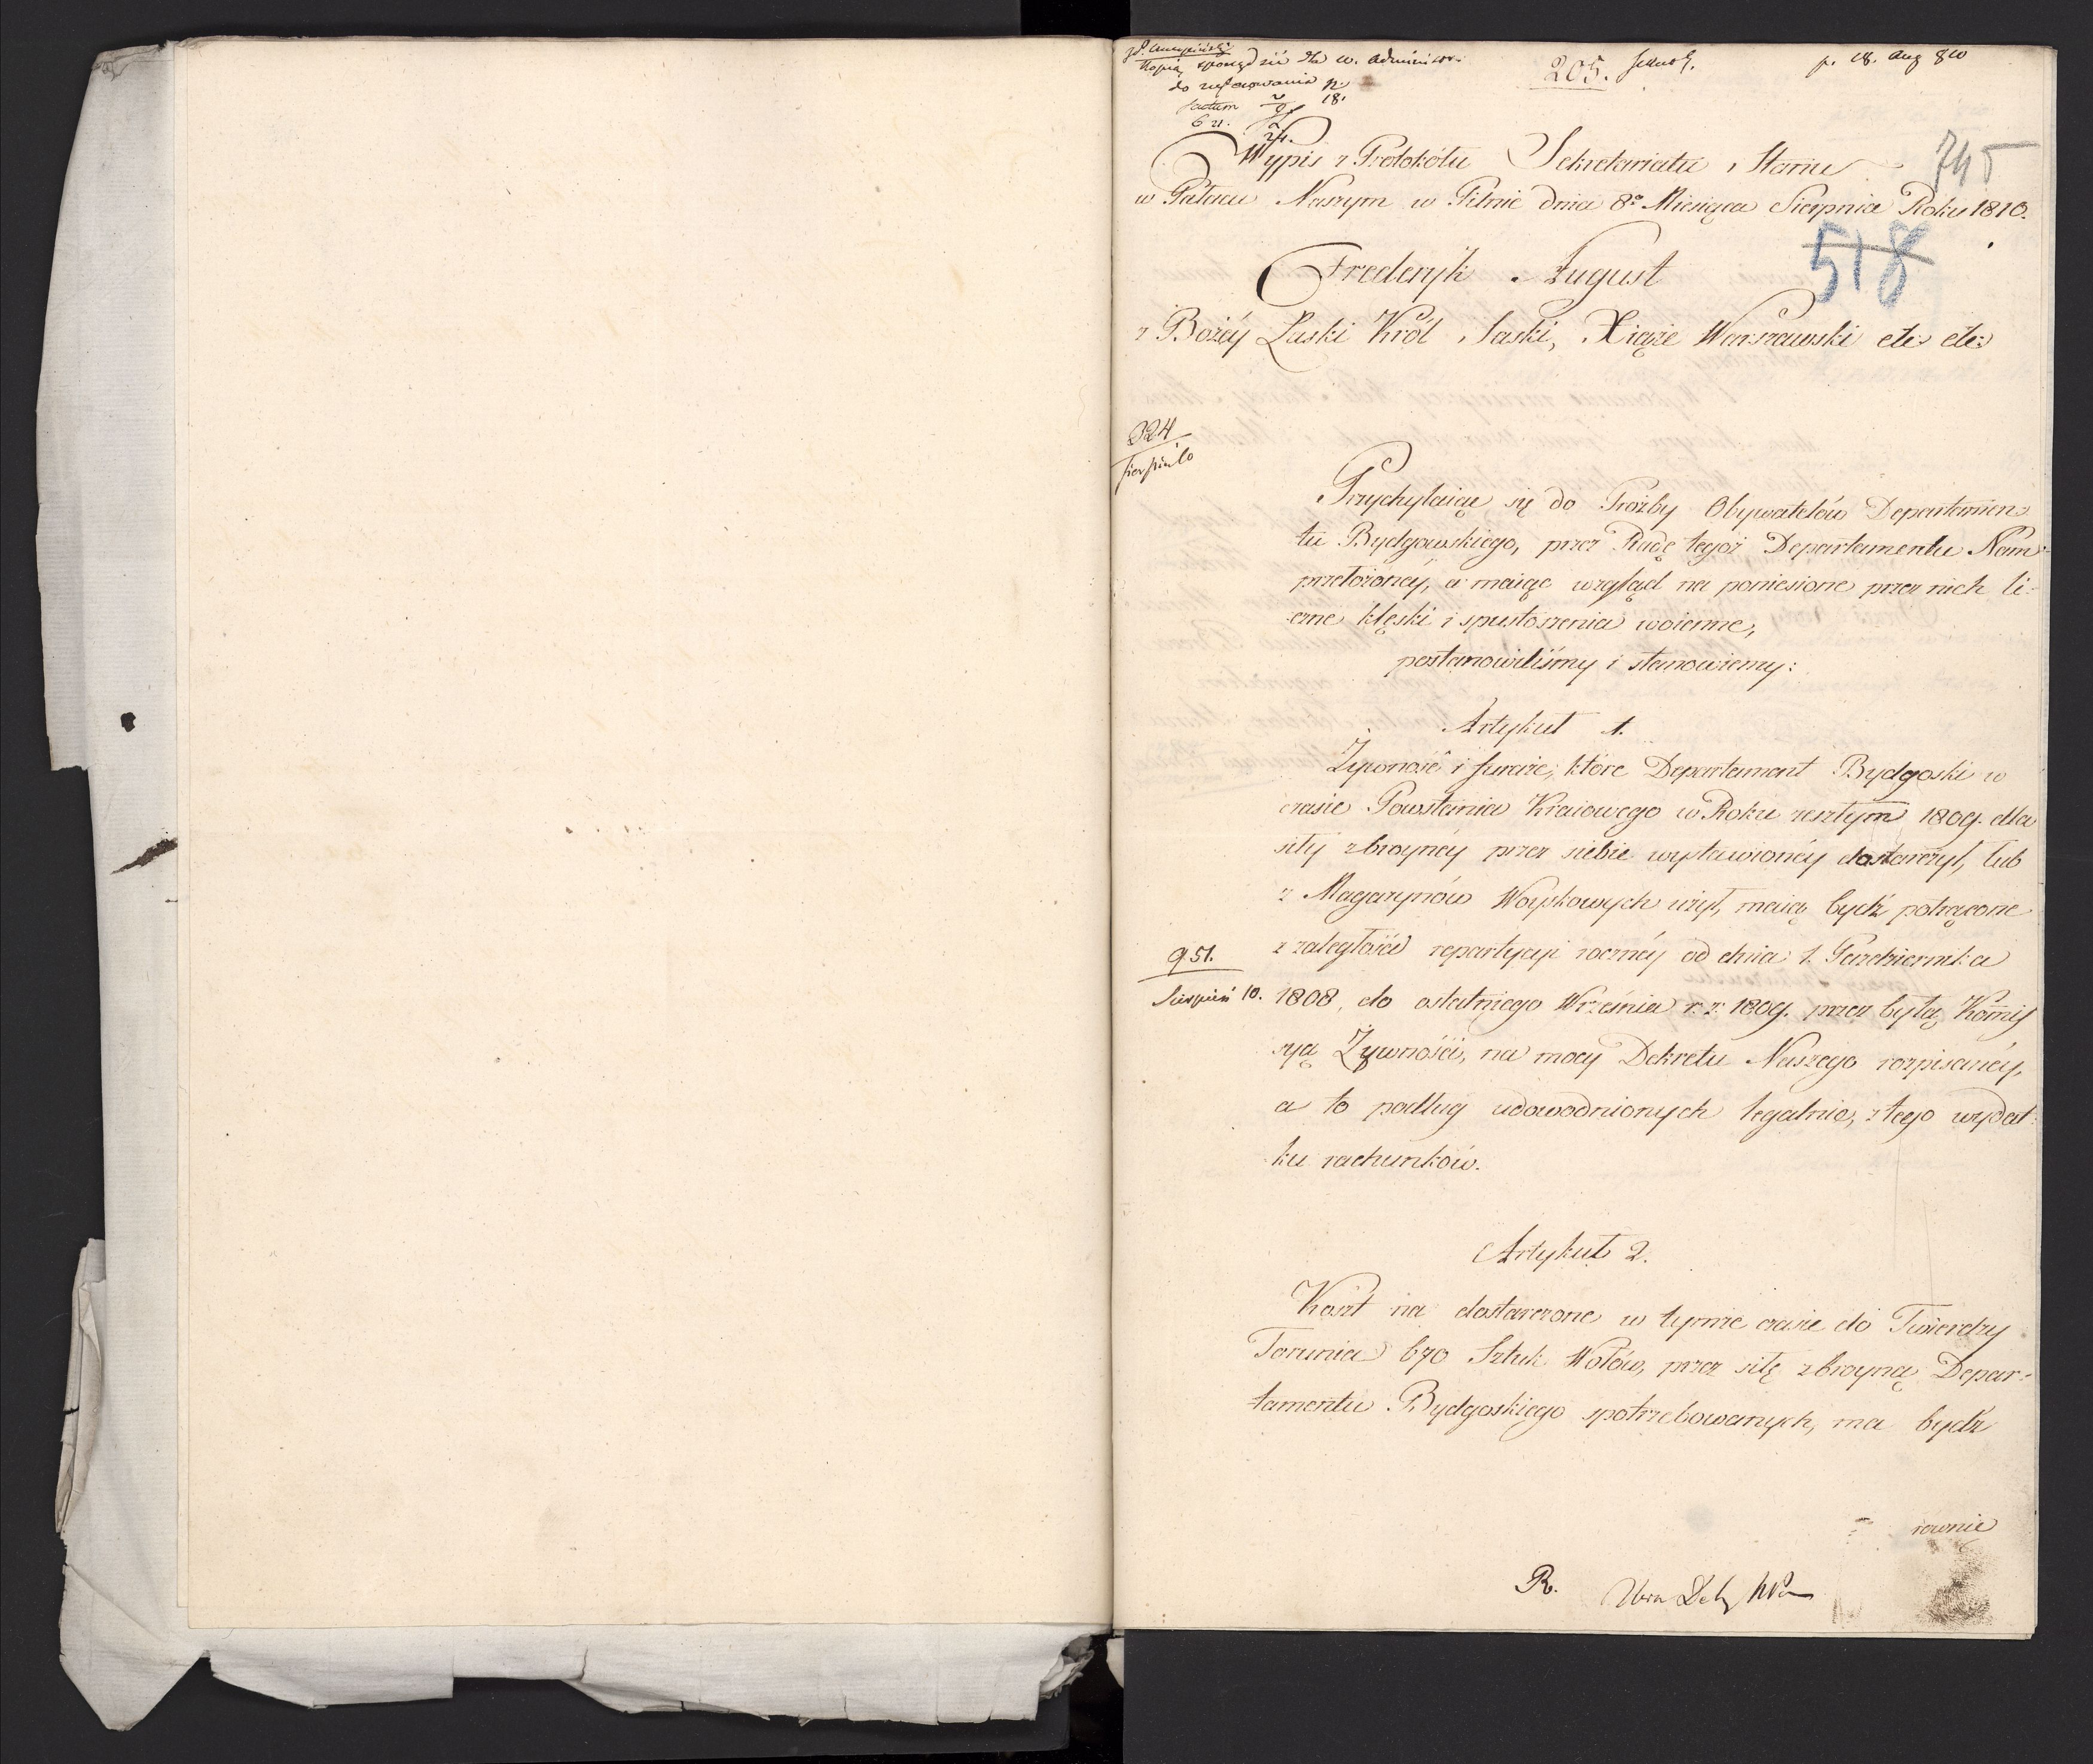 Kopią sporządzić dla w. Adminis
205.
p. 18. Aug 810
factum
Wypis z Protokółu Sekretariatu Stanu
745
w Pałacu Naszym w Pilnic dnia 8º Miesiąca Sierpnia Roku 1810.
518
Frederyk August
z Bożéy Łaski Król Saski, Xiąże Warszawski etc: etc:
324
Przychylaiąc się do Proźby Obywatelów Departamen
tu Bydgowskiego, przez Radę tegoż Departamentu Nam
przełożonéy, a maiąc wzgląd na poniesione przez nich li-
czne klęski i spustoszenia woienne,
postanowiliśmy i stanowiemy:
Artykuł 1.
Żywność i furaże, które Departament Bydgoski w
czasie Powstania Kraiowego w Roku zeszłym 1809. dla
siły zbroynéy przez siebie wystawionéy dostarczył, lub
z Magazynów Woyskowych użył, maią bydź potrącone
z zaległości repartycyi rocznéy od dnia 1. Pazdziernika
951.
Sierpień 10.
1808, do ostatniego Września r. z. 1809. przez byłą Kommis
syą Żywności, na mocy Dekretu Naszego rozpisanéy,
a to podług udowodnionych legalnie, z tego wydat-
ku rachunków.
Artykuł 2.
Koszt na dostarczone w tymże czasie do Twierdzy
Torunia 670 Sztuk Wołów, przez siłę zbroyną Depar-
tamentu Bydgoskiego spotrzebowanych, ma bydź
rownie
R.